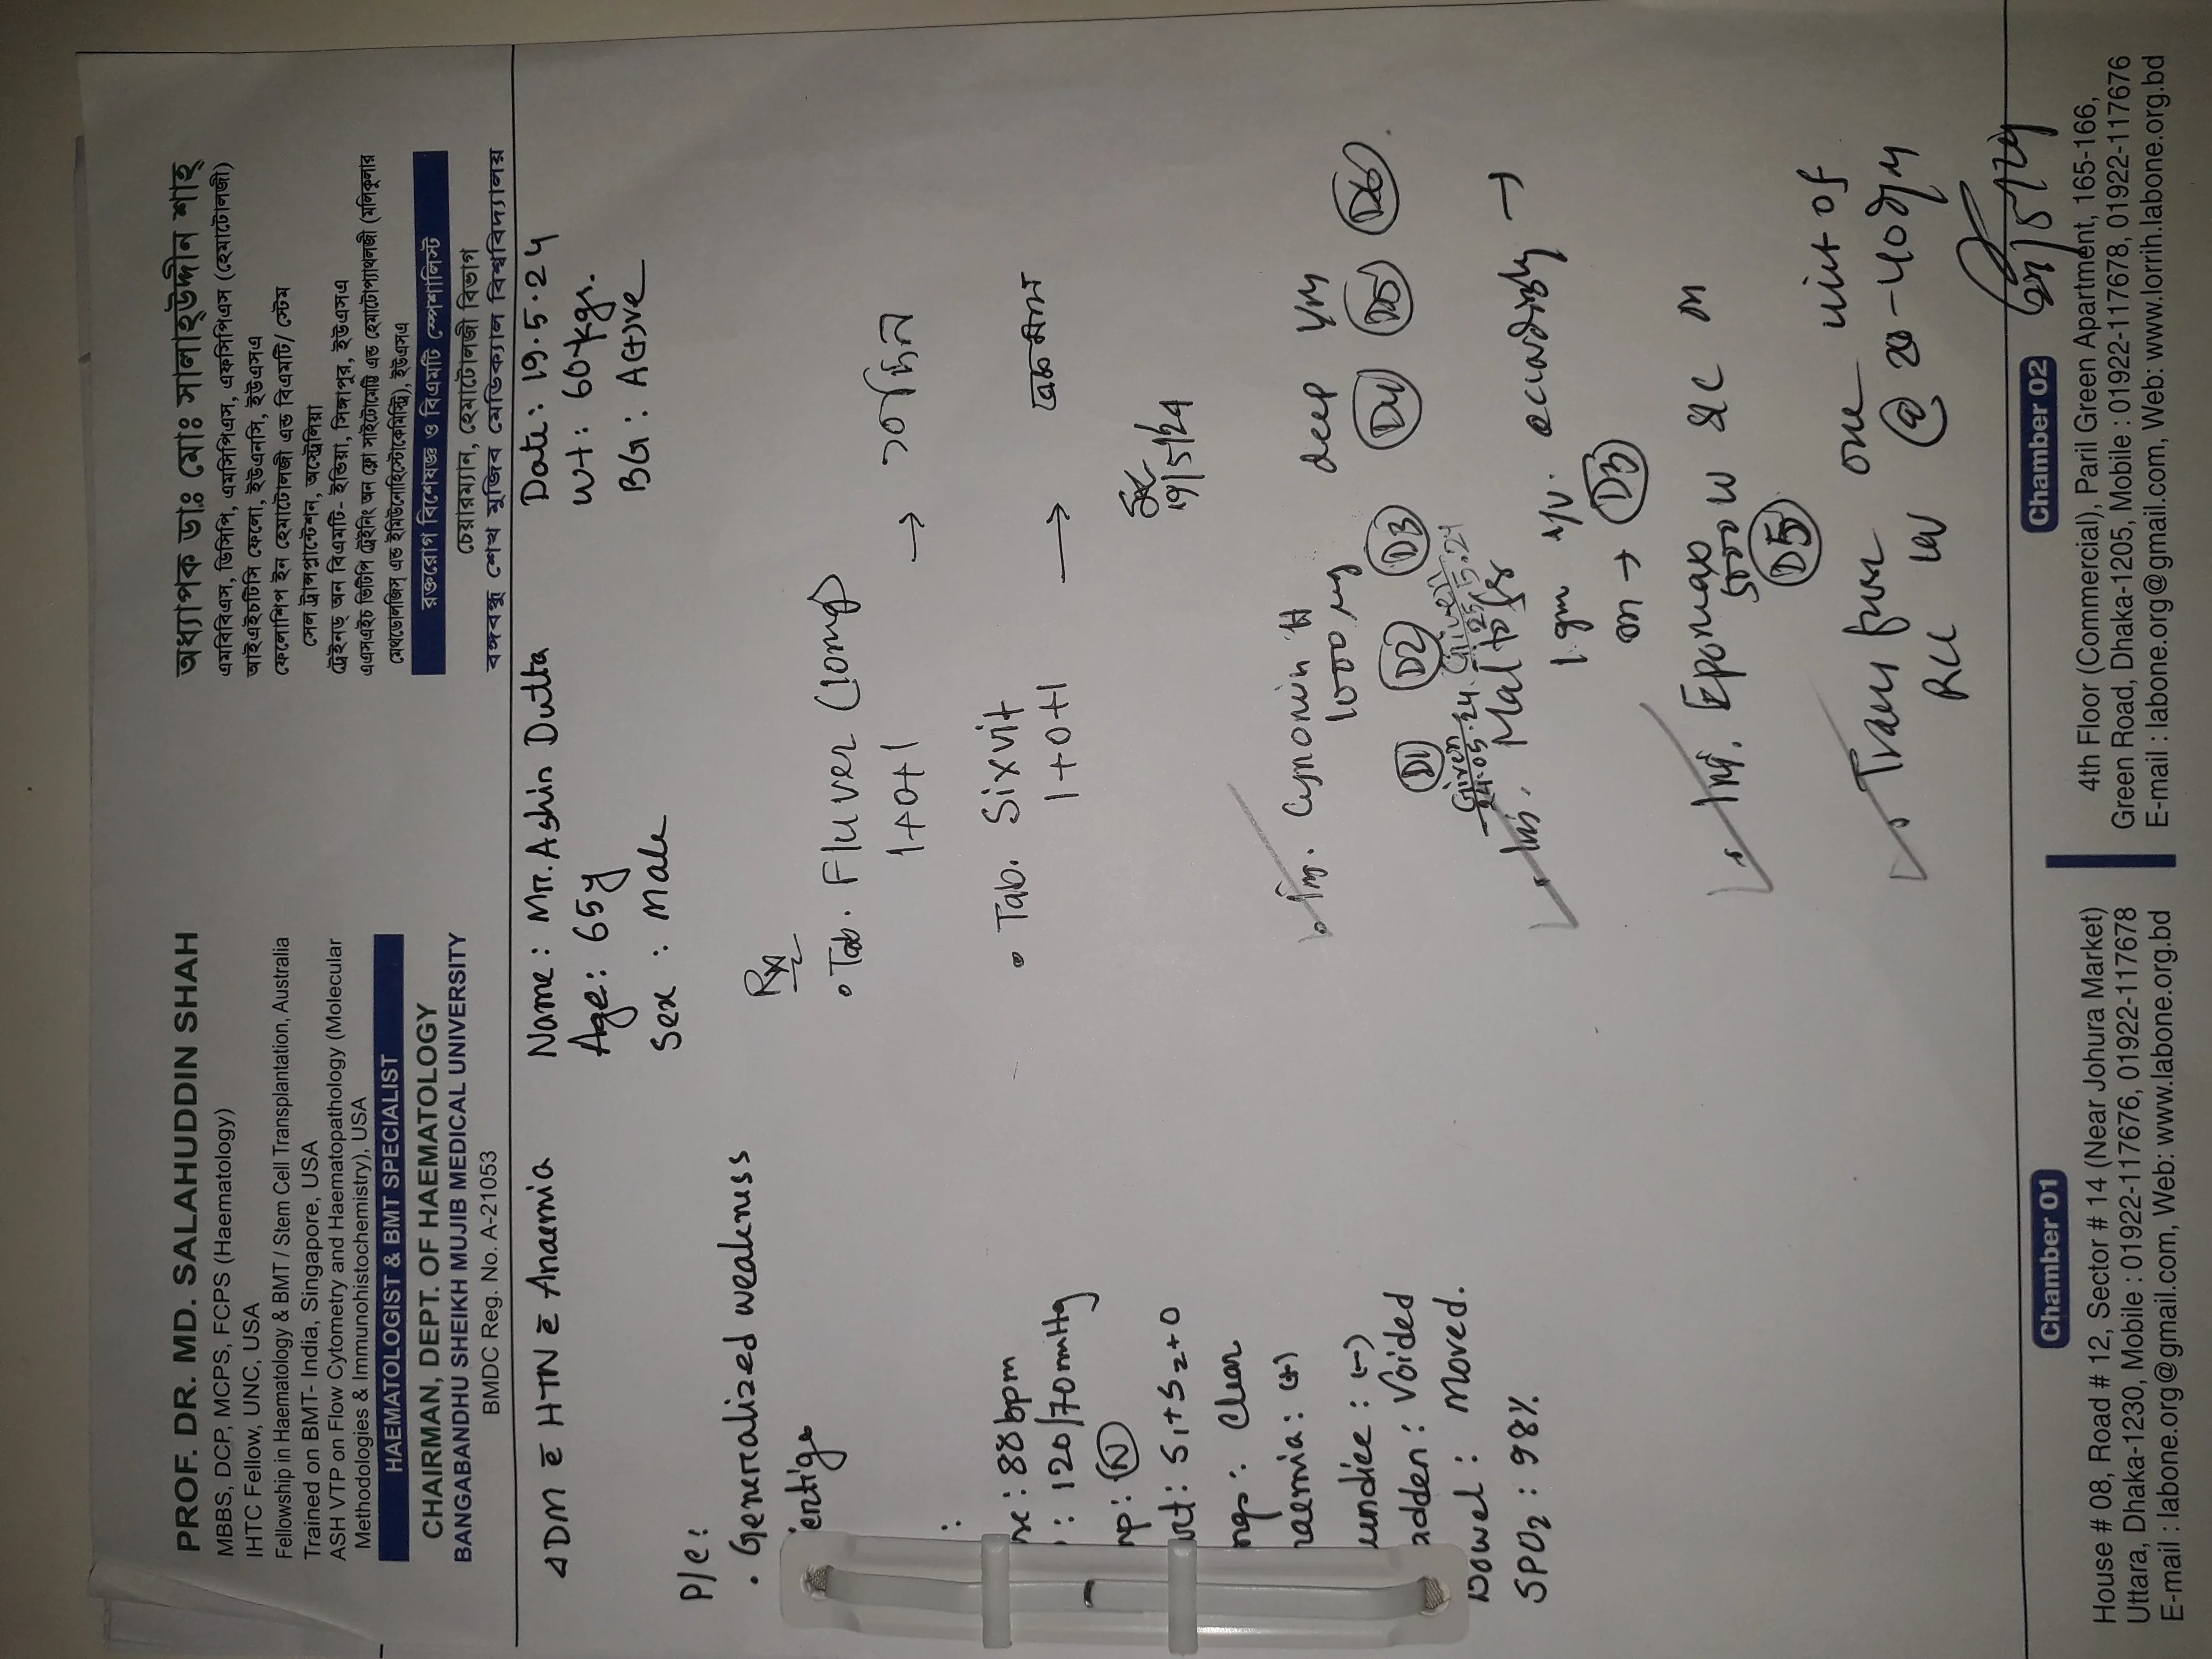 PROF. DR. MD. SALAHUDDIN SHAH
MBBS, DCP, MCPS, FCPS (Haematology)
IHTC Fellow, UNC, USA
Fellowship in Haematology & BMT / Stem Cell Transplantation, Australia
Trained on BMT- India, Singapore, USA
ASH VTP on Flow Cytometry and Haematopathology (Molecular
Methodologies & Immunohistochemistry), USA
HAEMATOLOGIST & BMT SPECIALIST
CHAIRMAN, DEPT. OF HAEMATOLOGY
BANGABANDHU SHEIKH MUJIB MEDICAL UNIVERSITY
BMDC Reg. No. A-21053
অধ্যাপক ডাঃ মোঃ সালাহ্উদ্দীন শাহ্
এমবিবিএস, ডিসিপি, এমসিপিএস, এফসিপিএস (হেমাটোলজী)
আইএইচটিসি ফেলো, ইউএনসি, ইউএসএ
ফেলোশিপ ইন হেমাটোলজী এন্ড বিএমটি/ স্টেম
সেল ট্রান্সপ্লান্টেশন, অস্ট্রেলিয়া
ট্রেইনড্ অন বিএমটি- ইন্ডিয়া, সিঙ্গাপুর, ইউএসএ
এএসএইচ ভিটিপি ট্রেইনিং অন ফ্লো সাইটোমেট্রি এন্ড হেমাটোপ্যাথলজী (মলিকুলার
মেথডোলজিস্ এন্ড ইমিউনোহিস্টোকেমিস্ট্রি), ইউএসএ
রক্তরোগ বিশেষজ্ঞ ও বিএমটি স্পেশালিস্ট
চেয়ারম্যান, হেমাটোলজী বিভাগ
বঙ্গবন্ধু শেখ মুজিব মেডিক্যাল বিশ্ববিদ্যালয়
Name : Mr. Ashin Dutta
Date : 19.5.24
Age : 65y
Wt : 60 kgs.
Sex : Male
BG : A(+)ve
DM c̄ HTN c̄ Anaemia
P/C :
• Generalized weakness
ertigo
:
se : 88 bpm
: 120/70 mmHg
mp : (N)
S1+S2+0
ngs : Clear
naemia : (+)
undice : (-)
adder : Voided
Bowel : Moved.
SPO2 : 98%
Rx
• Tab. Fluver (10mg)
1+0+1 →
• Tab. Sixvit
1+0+1 →
19/5/24
• Inj. Cynomin H
1000 mg deep I/M
D1 D2 D3 D4 D5 D6
Given 24.05.24
Given 25.5.24
1 gm I/V. accordingly →
→ D3
• Inj.
5000 IU S/C
D5
• Transfuse one unit of
RCC
Chamber 01
House # 08, Road # 12, Sector # 14 (Near Johura Market)
Uttara, Dhaka-1230, Mobile : 01922-117676, 01922-117678
E-mail : labone.org@gmail.com, Web: www.labone.org.bd
Chamber 02
4th Floor (Commercial), Paril Green Apartment, 165-166,
Green Road, Dhaka-1205, Mobile : 01922-117678, 01922-117676
E-mail : labone.org@gmail.com, Web: www.lorrih.labone.org.bd